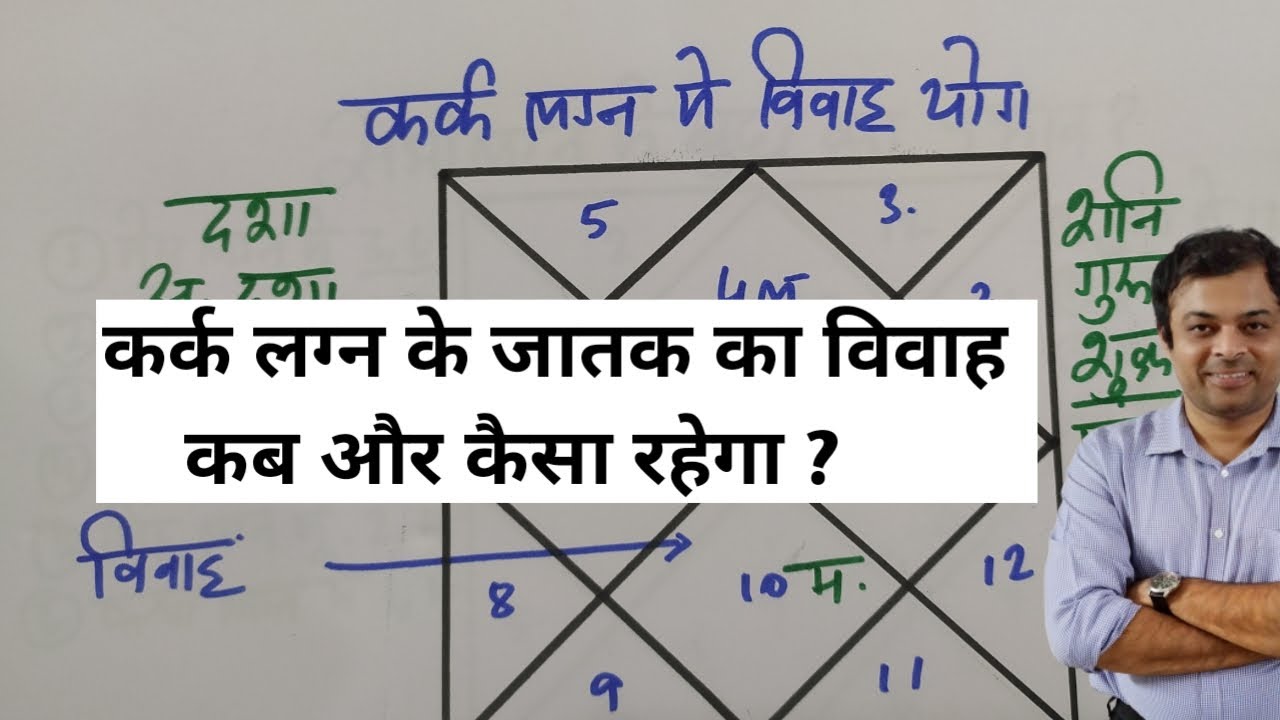 कर्क लग्न मे विवाह योग
5
3.
दशा
शनि
गुरू
2
कर्क लग्न के जातक का विवाह
शुक्र
कब और कैसा रहेगा ?
विवाह
8
10 म.
12
9
11